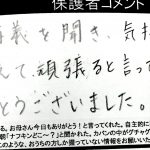 保護者コメント
講義を聞き、気持
えて、頑張ると言って
とうございました。
る。お母さん今日もありがとう！と言ってくれた。自主的に
朝「ナフキンどこ～？」と聞かれた。カバンの中がグチャグ
このような、おうちの方しか撮っていない情報をお願いいた